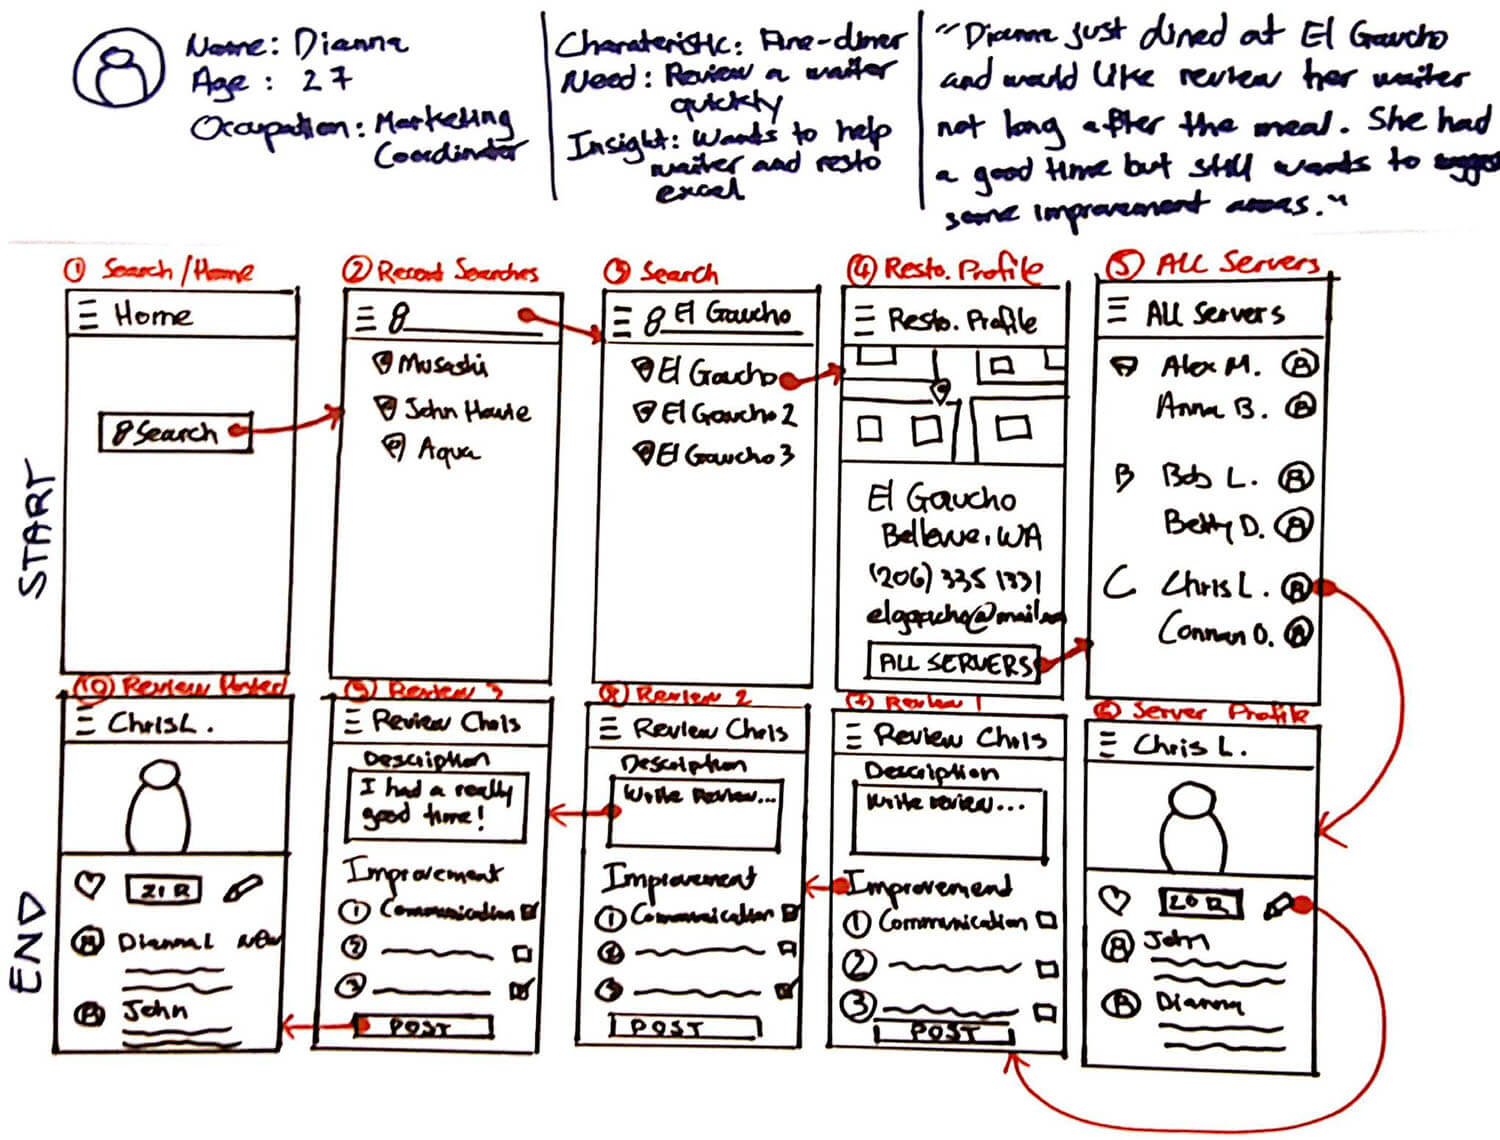 Name: Dianna
Age: 27
Occupation: Marketing
Coordinator
Charateristic: Fine-diner
Need: Review a waiter
quickly
Insight: Wants to help
waiter and resto
excel
"Dianna just dined at El Gaucho
and would like review her waiter
not long after the meal. She had
a good time but still wants to suggest
some improvement areas."
START
① Search/Home
Home
Search
② Recent Searches
Musashi
John Howie
Aqua
③ Search
El Gaucho
El Gaucho
El Gaucho 2
El Gaucho 3
④ Resto. Profile
Resto. Profile
El Gaucho
Bellevue, WA
(206) 335 1331
ALL SERVERS
⑤ All Servers
All Servers
A Alex M.
Anna B.
B Bob L.
Betty D.
C Chris L.
Connan O.
END
⑩ Review Posted
Chris L.
21 R
Dianna L NEW
John
⑨ Review 3
Review Chris
Description
I had a really
good time!
Improvement
① Communication
②
③
POST
⑧ Review 2
Review Chris
Description
Write Review...
Improvement
① Communication
②
③
POST
⑦ Review 1
Review Chris
Description
Write review...
Improvement
① Communication
②
③
POST
⑥ Server Profile
Chris L.
20 R
John
Dianna